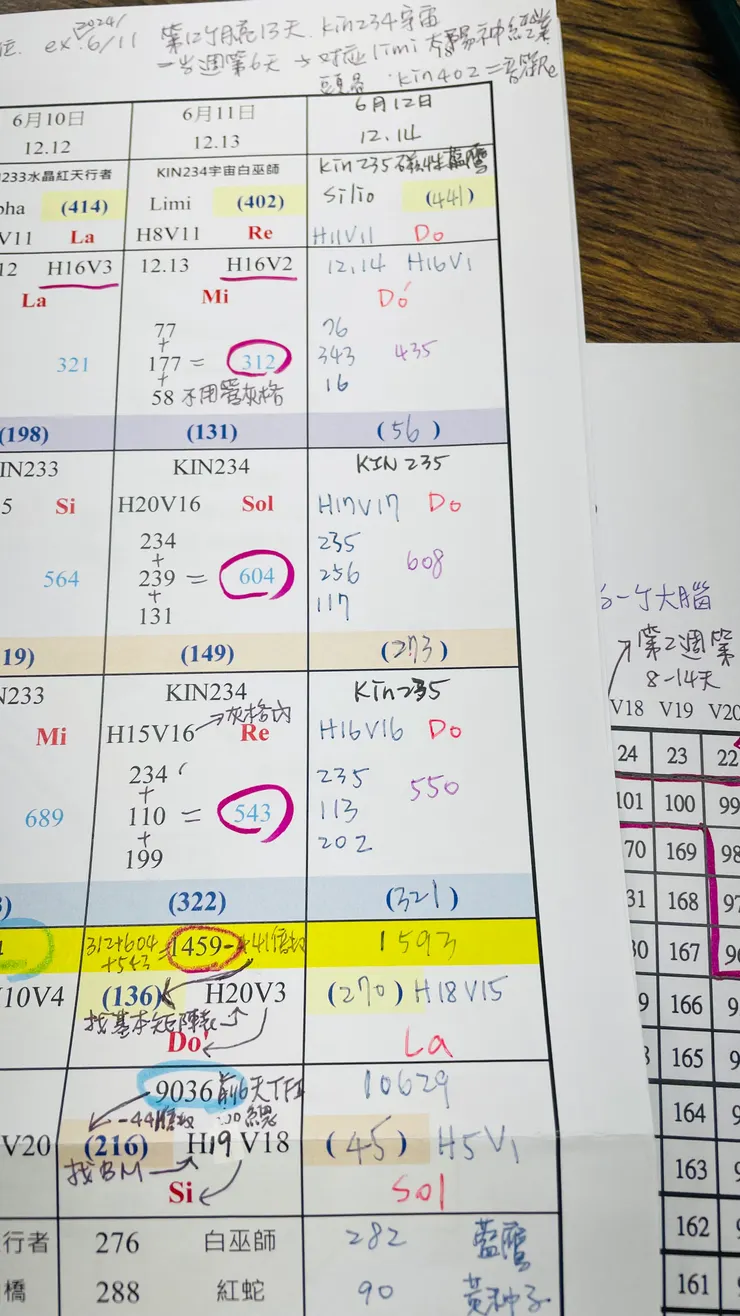 2024/
ex: 6/11 第12个月亮13天. kin234宇宙
一当週第6天 → 对应limi 太陽神經叢
kin402 = 音符Re
6月10日 6月11日 6月12日
12.12 12.13 12.14
233水晶紅天行者 KIN234宇宙白巫師 Kin235磁性藍鷹
pha (414) Limi (402) Silio (441)
V11 La H8V11 Re H11V11 Do
12 H16V3 12.13 H16V2 12.14 H16V1
La Mi Do'
77 76
+
321 177 = 312 343 435
+
58 不用管灰格 16
(198) (131) (56)
IN233 KIN234 KIN235
5 Si H20V16 Sol H17V17 Do
234 235
+
564 239 = 604 256 608
+
131 117
19) (149) (273)
N233 KIN234 Kin235
Mi H15V16 → 灰格內 Re H16V16 Do
234 235
+
689 110 = 543 113 550
+
199 202
) (322) (321)
312+604
+543 = 1459- 441倍数 1593
10V4 (136) H20V3 (270) H18V15
找基本矩陣表
Do' La
9036 前6天TFI 10629
-441倍数 加總
V20 (216) H19V18 (45) H5V1
找BM
Si Sol
行者 276 白巫師 282 藍鷹
橋 288 紅蛇 90 黃种子
一个大腦
第2週第
8-14天
V18 V19 V20
24 23 22
101 100 99
70 169 98
31 168 97
30 167 96
9 166 9
165 9
164
163
162
161